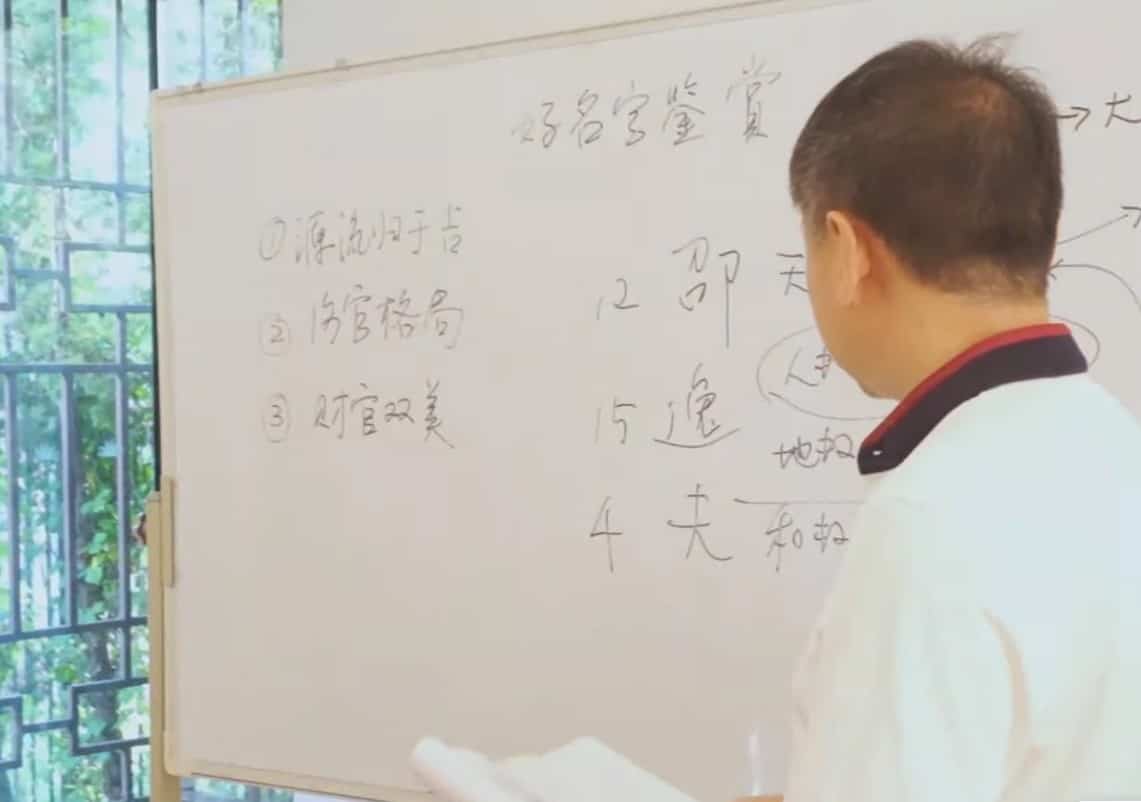 好名字鉴赏
→大
①源流归于吉
②伤官格局
③财官双美
12 邵 天
15 逸 人
地权
4 夫 和权